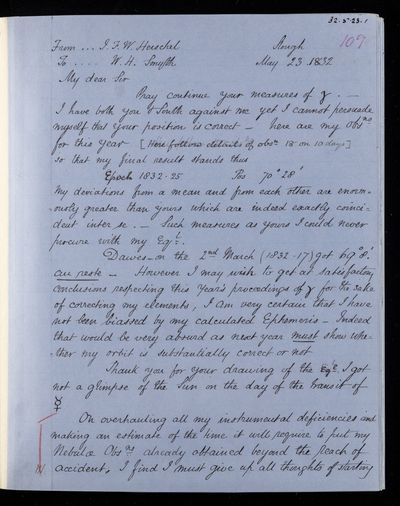 32.5.23.1
107
From ... J. F. W. Herschel Slough
To .... W. H. Smyth May 23 1832
My dear Sir
Pray continue your measures of γ. —
I have both you & South against me yet I cannot persuade
myself that your position is correct — here are my Obsns
for this year [Here follows details of obsns 18 on 10 days]
so that my final result stands thus
Epoch 1832·25 Pos 70° 28'
My deviations from a mean and from each other are enorm-
-ously greater than yours which are indeed exactly coinci-
dent inter se. — Such measures as yours I could never
procure with my Eql.
Dawes on the 2nd March (1832·17) got 69° 8'.
au reste — However I may wish to get at satisfactory
conclusions respecting this Year's proceedings of γ for the sake
of correcting my elements, I am very certain that I have
not been biassed by my calculated Ephemeris — Indeed
that would be very absurd as next year must show whe-
-ther my orbit is substantially correct or not
Thank you for your drawing of the I got
not a glimpse of the Sun on the day of the transit of
☿
On overhauling all my instrumental deficiencies and
making an estimate of the time it will require to put my
Nebulæ Obsns already attained beyond the reach of
accident, I find I must give up all thoughts of starting